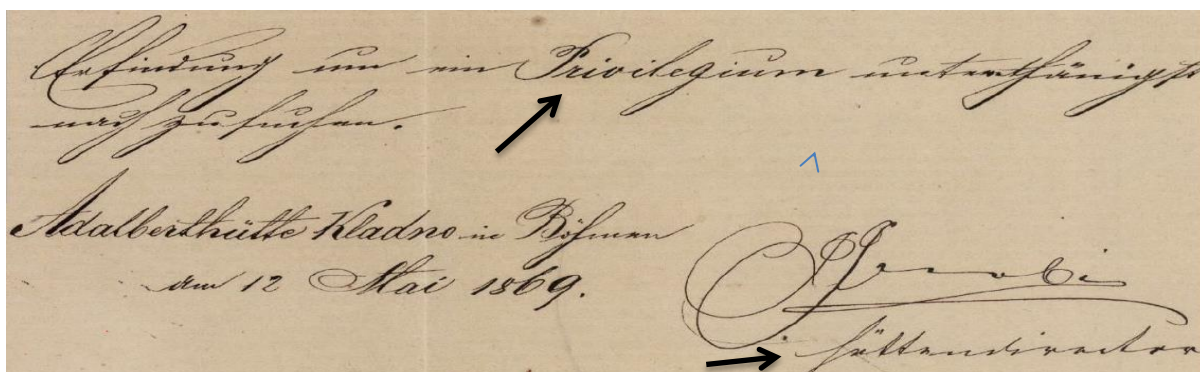 Erfindung um ein Privilegium unterthänigst
nachzusuchen.
Adalberthütte Kladno in Böhmen
am 12 Mai 1869.
Jacobi
Hüttendirector